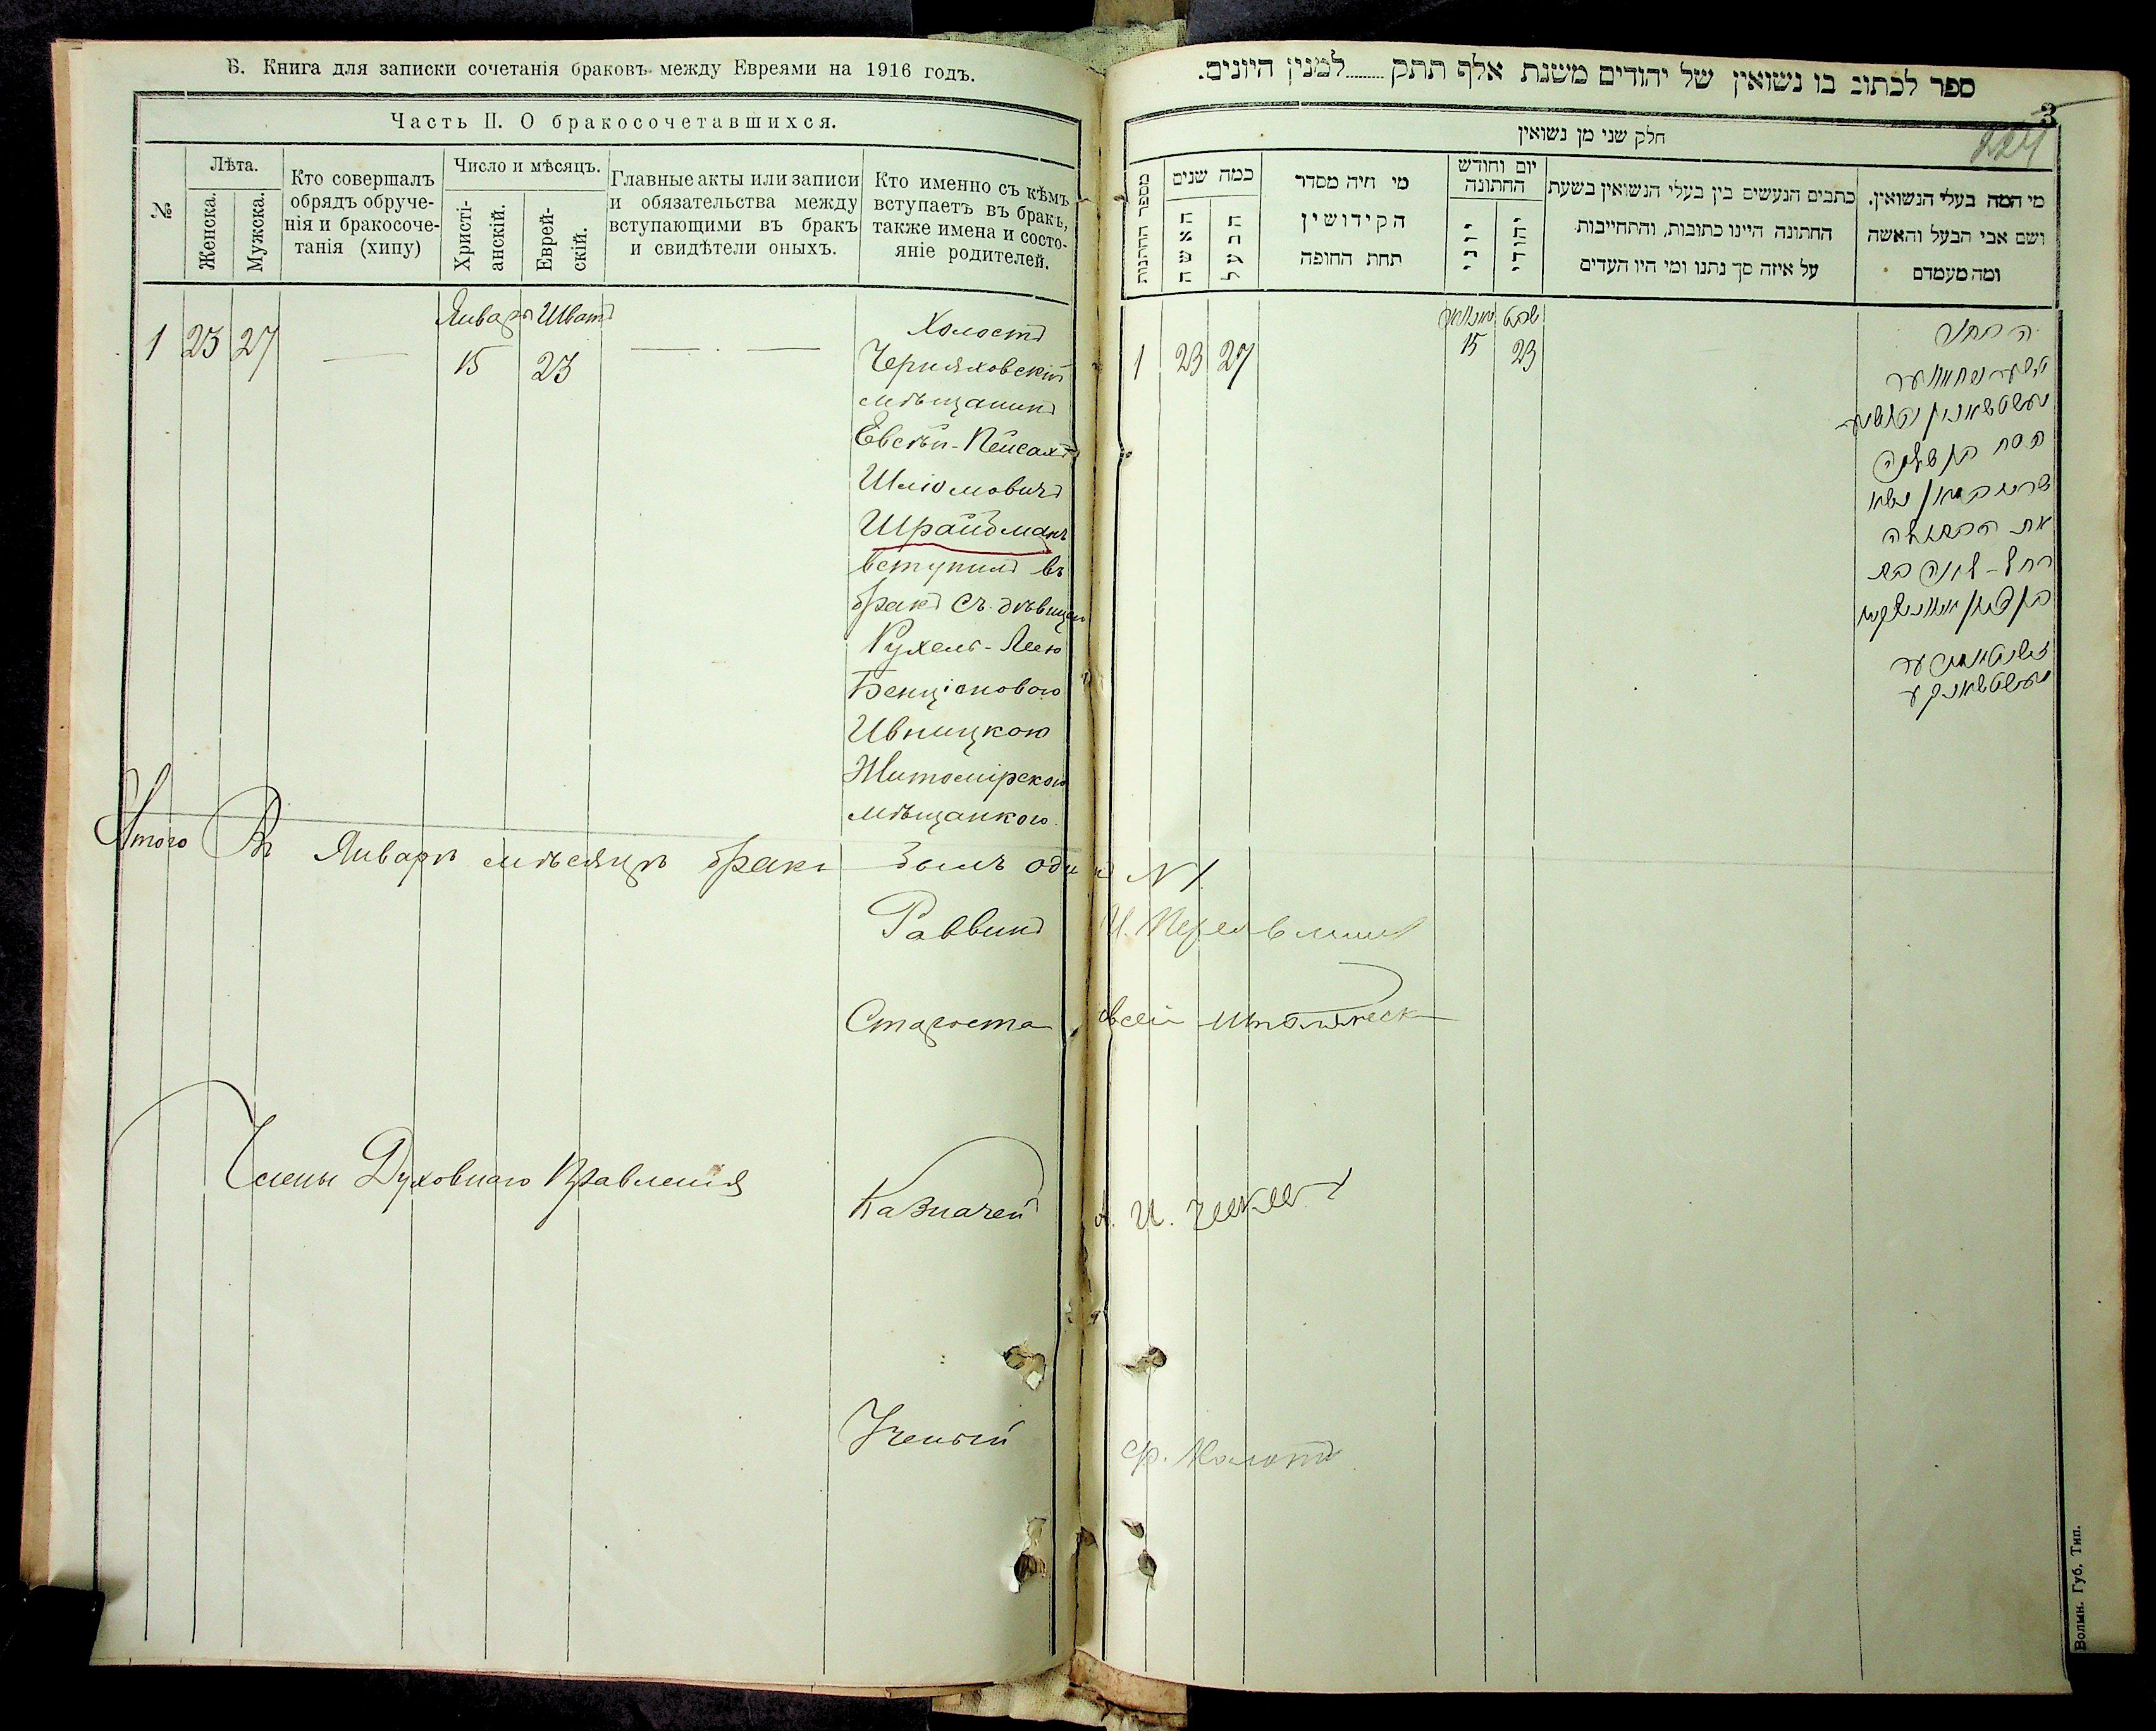 В. Книга для записки сочетанія браковъ между Евреями на 1916 годъ.
Часть II. О бракосочетавшихся.
№
Лѣта.
Женска.
Мужска.
Кто совершалъ
обрядъ обруче-
нія и бракосоче-
танія (хипу)
Число и мѣсяцъ.
Христі-
анскій.
Еврей-
скій.
Главные акты или записи
и обязательства между
вступающими въ бракъ
и свидѣтели оныхъ.
Кто именно съ кѣмъ
вступаетъ въ бракъ,
также имена и состо-
яніе родителей.
Январь Шватъ
1 23 27 — 15 23 — . —
Холостъ
Черняховскій
мѣщанинъ
Евсѣй-Пейсахъ
Шлiомовичъ
Шрайбманъ
вступилъ въ
бракъ съ дѣвицей
Рухель-Леею
Бенціоновою
Ивницкою
Житомірскою
мѣщанкою.
Итого въ Январѣ мѣсяцѣ бракъ былъ одинъ №1
Раввинъ И.
Староста
Члены Духовнаго Правленія
Казначей А. И.
Ученый
ספר לכתוב בו נשואין של יהודים משנת אלף תתק.........למנין היונים.
3
224
חלק שני מן נשואין
מספר החתונות
כמה שנים
האשה
הבעל
מי היה מסדר
הקידושין
תחת החופה
יום וחודש
החתונה
יוני
יהודי
כתבים הנעשים בין בעלי הנשואין בשעת
החתונה היינו כתובות, והתחייבות
על איזה סך נתנו ומי היו העדים
מי המה בעלי הנשואין.
ושם אבי הבעל והאשה
ומה מעמדם
יאנואר שבט
1 23 27 15 23
הבחור
פסח בן שלמה
שרייבמאן נשא
את הבתולה
רחל-לאה בת
בן ציון
Волын. Губ. Тип.